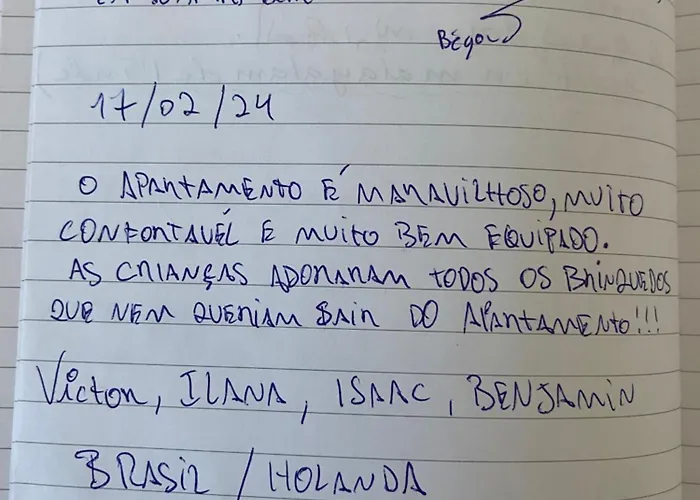 Bégou
17/02/24
O APARTAMENTO É MARAVILHOSO, MUITO
CONFORTÁVEL E MUITO BEM EQUIPADO.
AS CRIANÇAS ADORARAM TODOS OS BRINQUEDOS
QUE NEM QUERIAM SAIR DO APARTAMENTO!!!
Victor, ILANA, ISAAC, BENJAMIN
BRASIL / HOLANDA